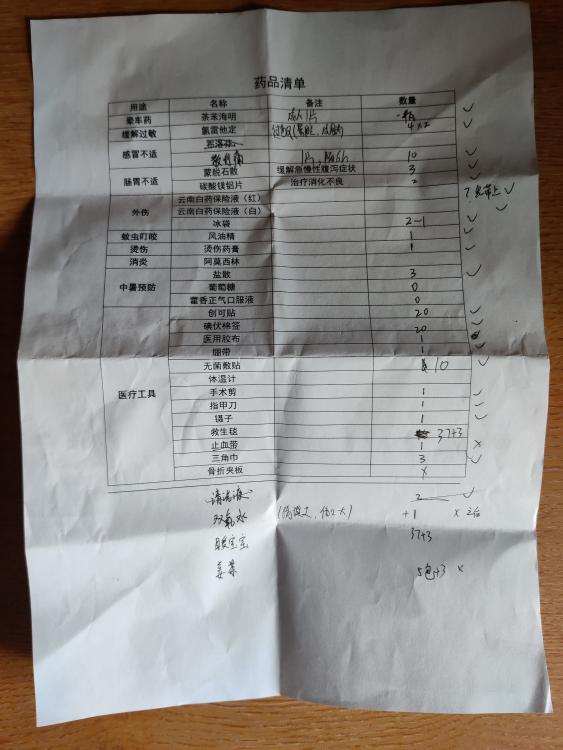 药品清单
用途 名称 备注 数量
晕车药 茶苯海明 成人1片 一瓶
缓解过敏 氯雷他定 4×2
感冒不适 布洛林
散利痛 10
肠胃不适 蒙脱石散 缓解急慢性腹泻症状 3
碳酸镁铝片 治疗消化不良 2
外伤 云南白药保险液（红） ? 先带上 ✓
云南白药保险液（白）
冰袋 2-1
蚊虫叮咬 风油精 1
烫伤 烫伤药膏 1
消炎 阿莫西林
中暑预防 盐散 3
葡萄糖 0
藿香正气口服液 0
医疗工具 创可贴 20
碘伏棉签 20
医用胶布 1
绷带 1
无菌敷贴 10
体温计
手术剪 1
指甲刀 1
镊子 1
救生毯 37+3
止血带 1 ×
三角巾 3
骨折夹板 ×
清洁液 2
双氧水 +1 ×
暖宝宝 37+3
姜茶 5包+3 ×